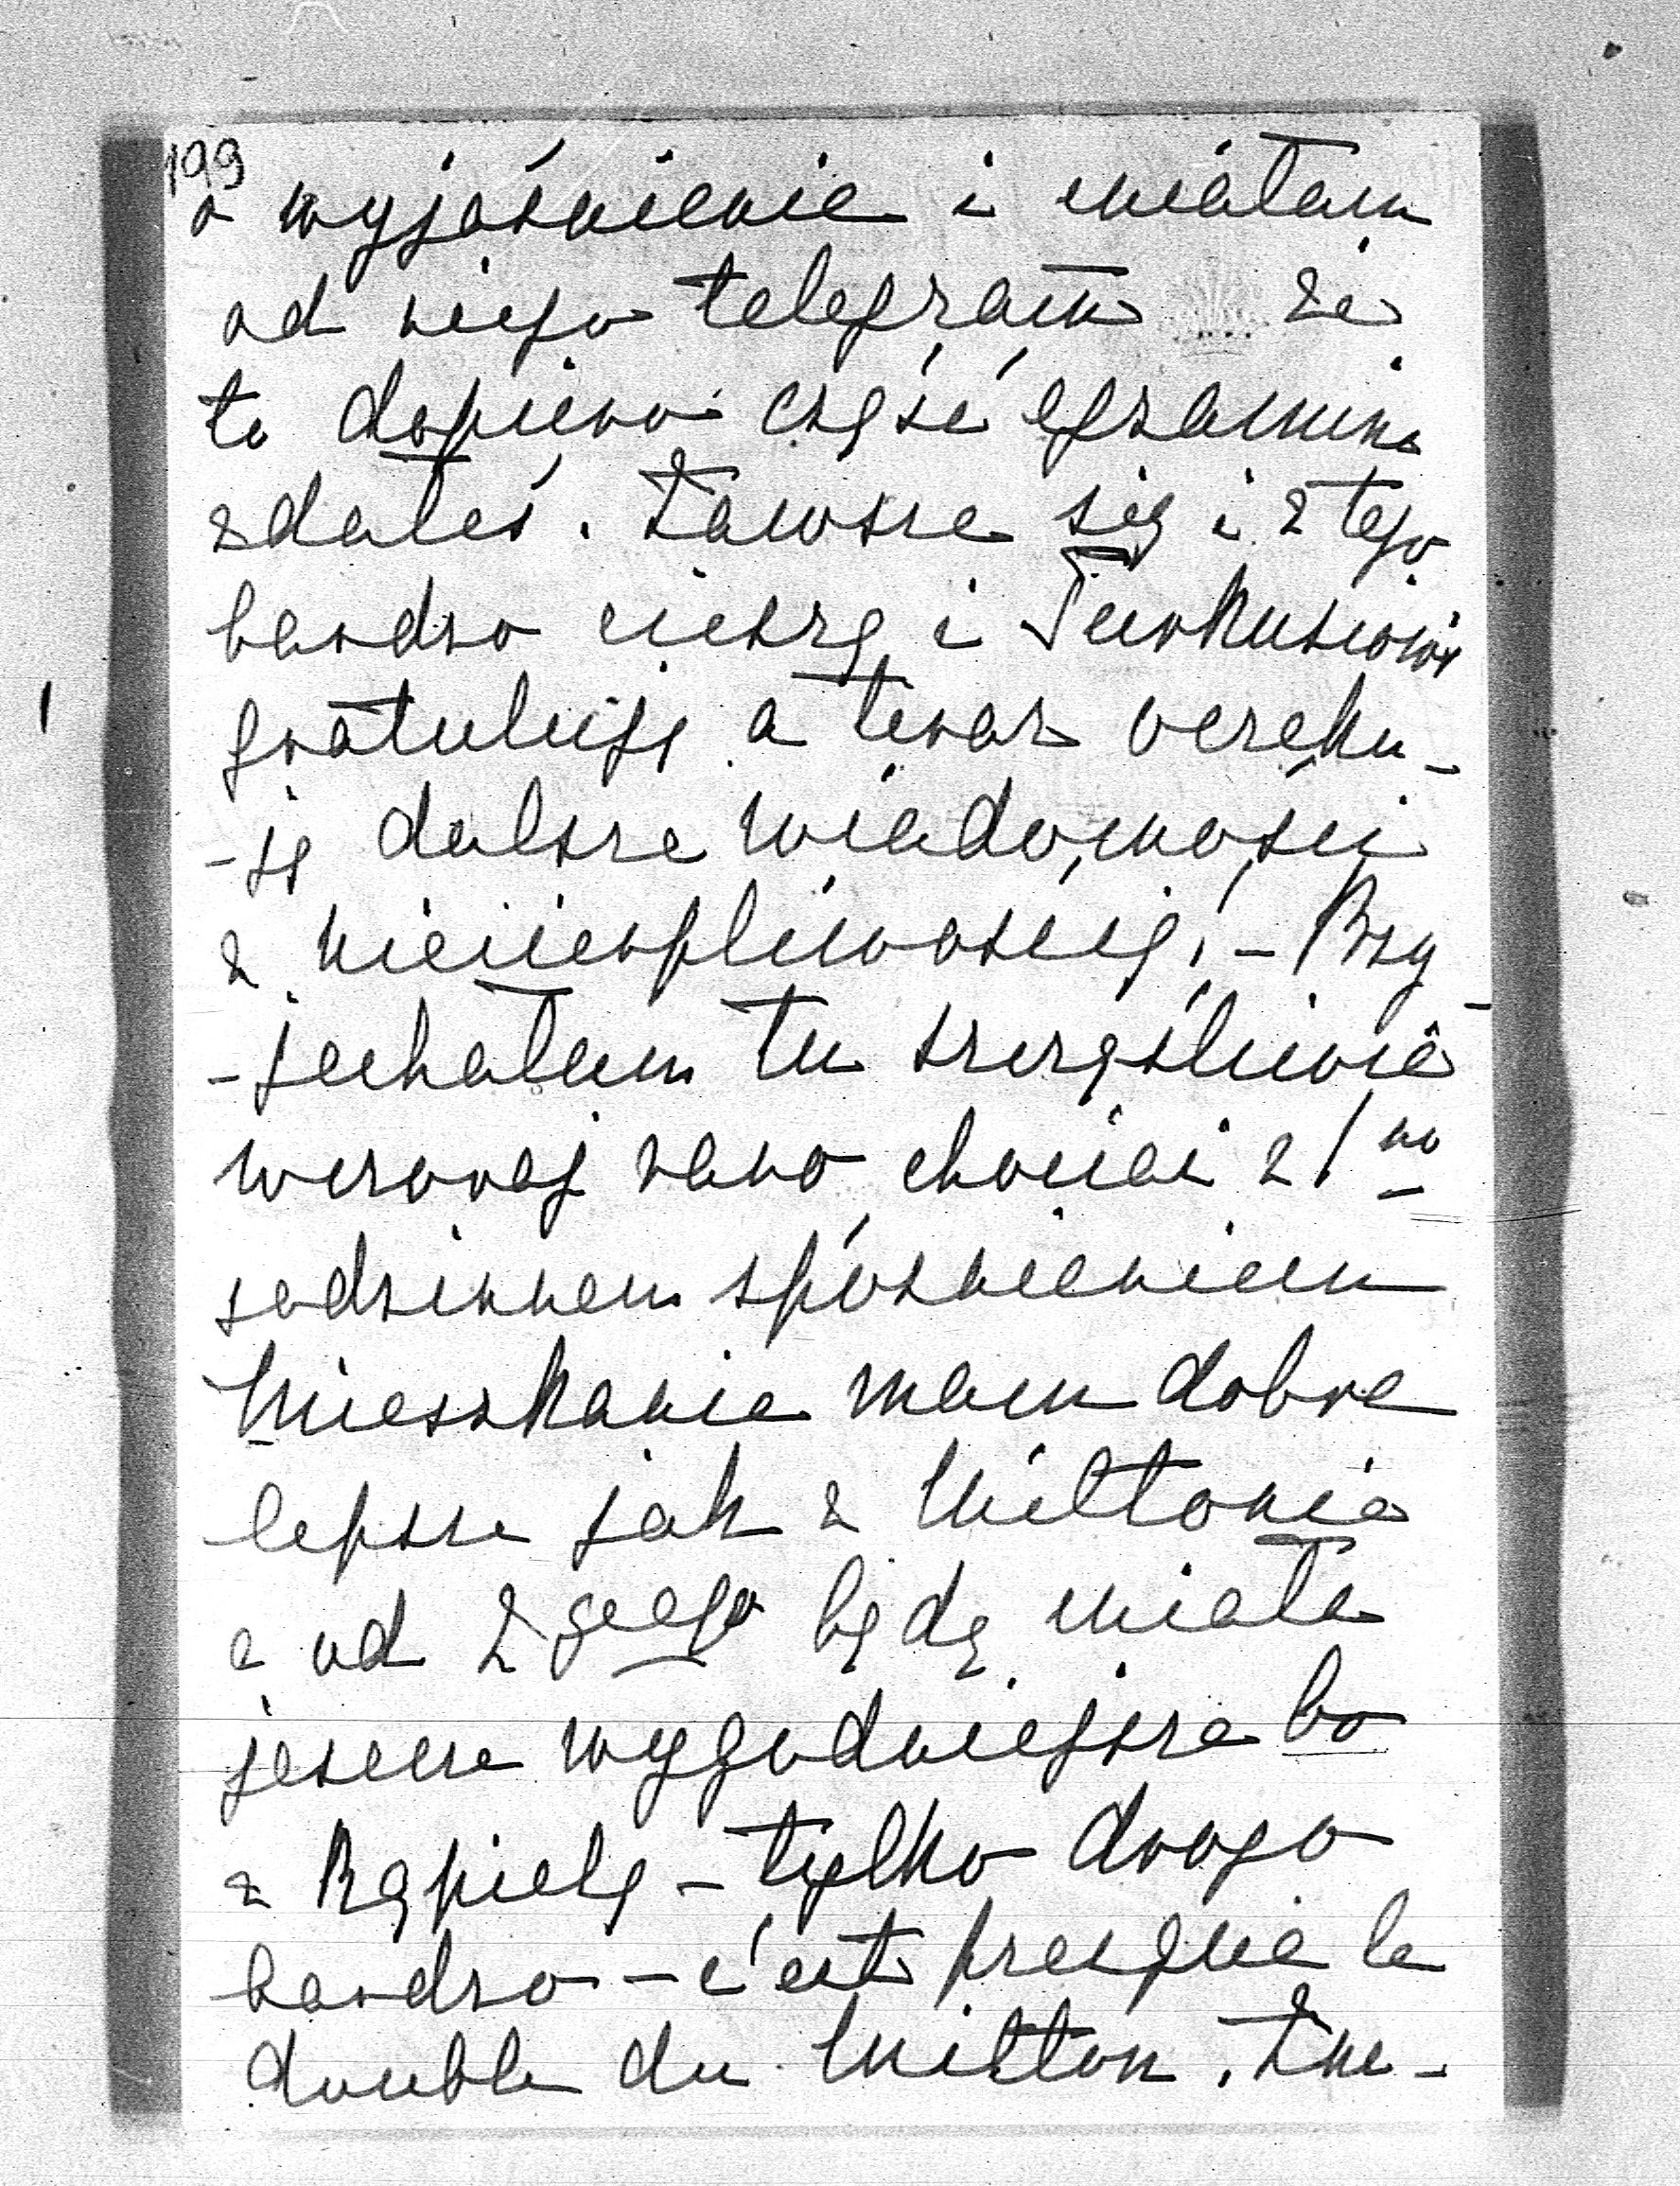 199
o wyjaśnienie i miałam
od niego telegram że
to dopiero część egzaminu
zdałeś. Zawsze się i z tego
bardzo cieszę i
gratuluję a teraz oczeku-
-ję dalsze wiadomości
z niecierpliwością! - Przy-
-jechałam tu szczęśliwie
wczoraj rano chociaż z 1no
godzinnem spóźnieniem
Mieszkanie mam dobre
lepsze jak z Miltonie
a od 2geego będę miała
jeszcze wygodniejsze bo
z kąpielą - tylko drogo
bardzo - c'est presque le
double du Milton. Zna-